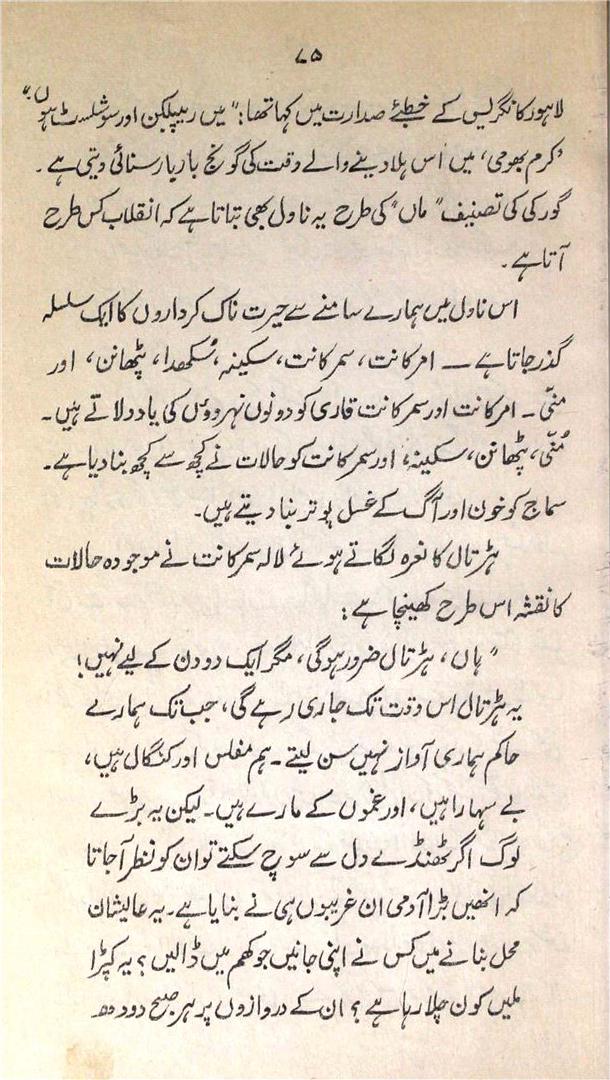 ۷۵
لاہور کانگریس کے خطبۂ صدارت میں کہا تھا: "میں ریپبلکن اور سوشلسٹ ہوں۔"
'کرم بھومی' میں اس ہلا دینے والے وقت کی گونج بار بار سنائی دیتی ہے۔
گورکی کی تصنیف "ماں" کی طرح یہ ناول بھی بتاتا ہے کہ انقلاب کس طرح
آتا ہے۔
اس ناول میں ہمارے سامنے سے حیرت ناک کرداروں کا ایک سلسلہ
گذر جاتا ہے — امرکانت، سمرکانت، سکینہ، سُکھدا، پٹھانن، اور
منّی۔ امرکانت اور سمرکانت قاری کو دونوں نہروؤں کی یاد دلاتے ہیں۔
مُنّی، پٹھانن، سکینہ، اور سمرکانت کو حالات نے کچھ سے کچھ بنا دیا ہے۔
سماج کو خون اور آگ کے غسل پوتر بنا دیتے ہیں۔
ہڑتال کا نعرہ لگاتے ہوئے لالہ سمرکانت نے موجودہ حالات
کا نقشہ اس طرح کھینچا ہے:
"ہاں، ہڑتال ضرور ہوگی، مگر ایک دو دن کے لیے نہیں!
یہ ہڑتال اس وقت تک جاری رہے گی، جب تک ہمارے
حاکم ہماری آواز نہیں سن لیتے۔ ہم مفلس اور کنگال ہیں،
بے سہارا ہیں، اور غموں کے مارے ہیں۔ لیکن یہ بڑے
لوگ اگر ٹھنڈے دل سے سوچ سکتے تو ان کو نظر آجاتا
کہ انھیں بڑا آدمی ان غریبوں ہی نے بنایا ہے۔ یہ عالیشان
محل بنانے میں کس نے اپنی جانیں جوکھم میں ڈالیں؟ یہ کپڑا
ملیں کون چلا رہا ہے؟ ان کے دروازوں پر ہر صبح دودھ